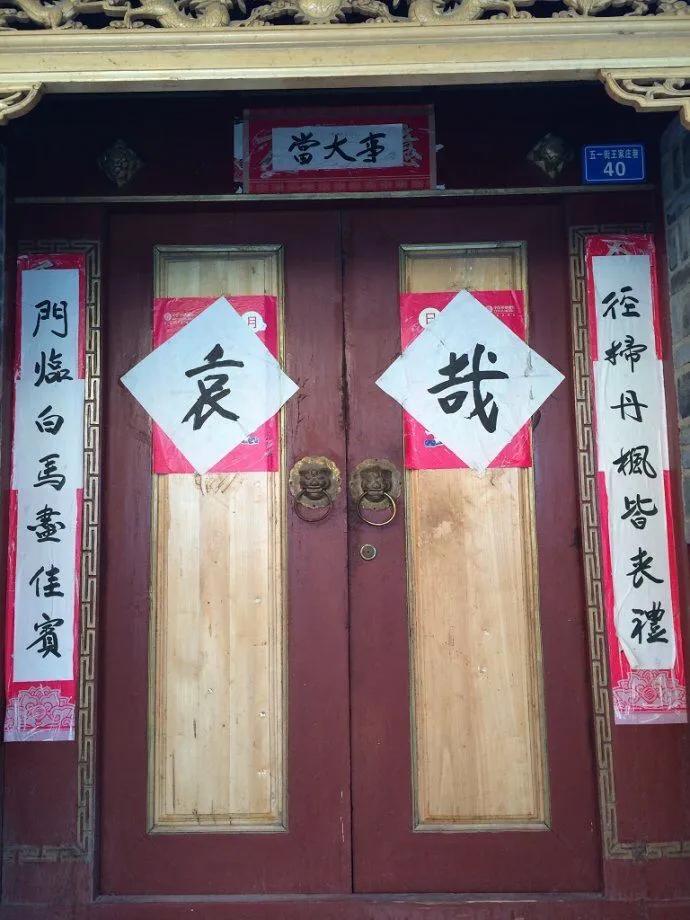 當大事
五一街王家庄巷
40
徑掃丹楓皆喪禮
門臨白馬盡佳賓
哀
哉
月
日